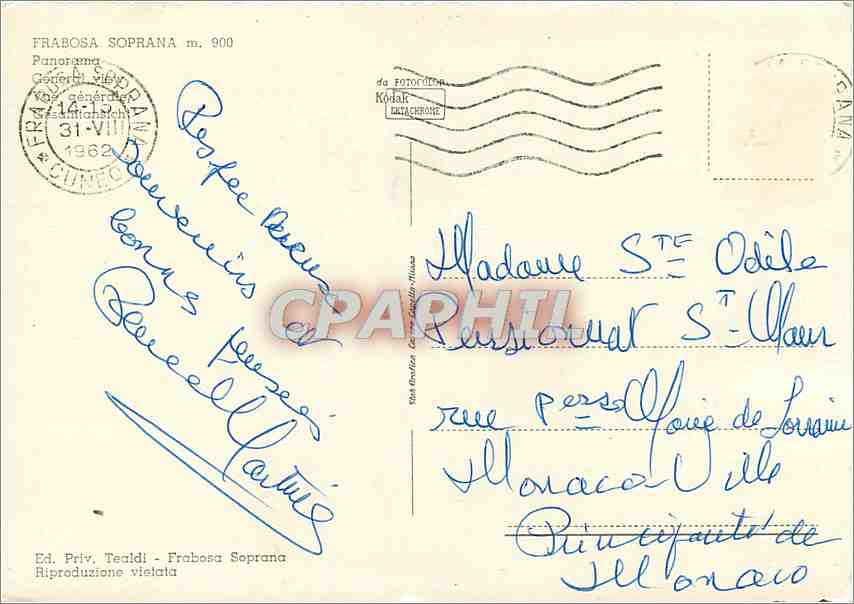 FRABOSA SOPRANA m. 900
Panorama
General view
Vue générale
Gesamtansicht
FRABOSA SOPRANA
14-15
31-VIII
1962
CUNEO
da FOTOCOLOR
Kodak
EKTACHROME
RANA
Respec
souvenirs et
bonnes pensées
Martine
Madame STE Odile
Pensionnat ST Maur
rue persse Marie de Lorraine
Monaco-Ville
Principauté de
Monaco
CPAPHIL
Ed. Priv. Tealdi - Frabosa Soprana
Riproduzione vietata